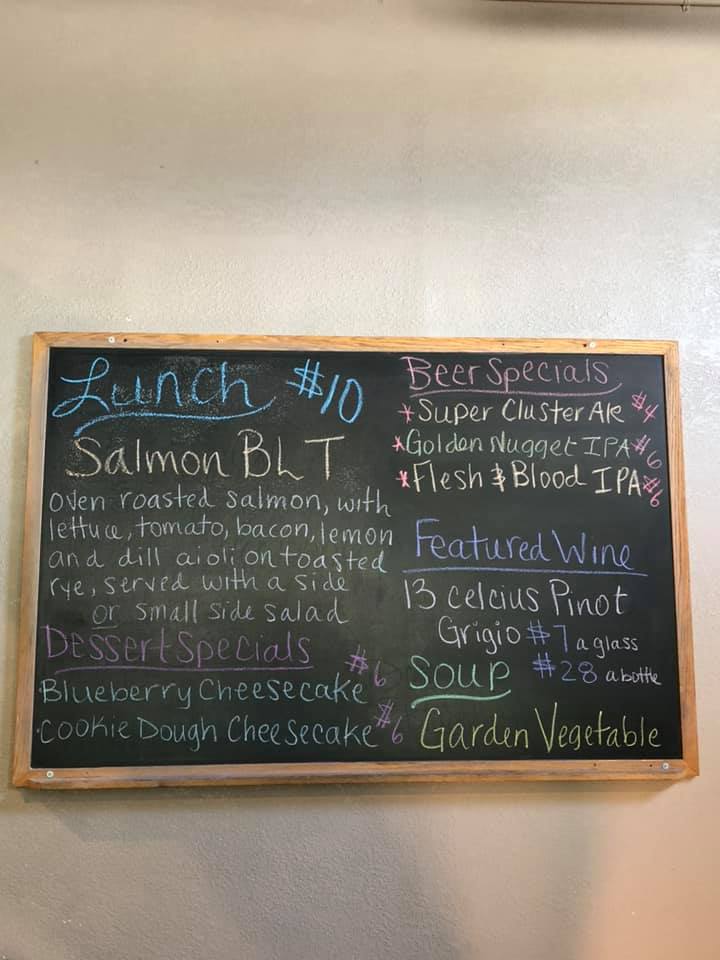 Lunch $10
Salmon BLT
oven roasted salmon, with
lettuce, tomato, bacon, lemon
and dill aioli on toasted
rye, served with a side
or small side salad
Dessert Specials
Blueberry Cheesecake $6
Cookie Dough Cheesecake $6
Beer Specials
*Super Cluster Ale $4
*Golden Nugget IPA $6
*Flesh & Blood IPA $6
Featured Wine
13 celcius Pinot
Grigio $7 a glass
$28 a bottle
Soup
Garden Vegetable